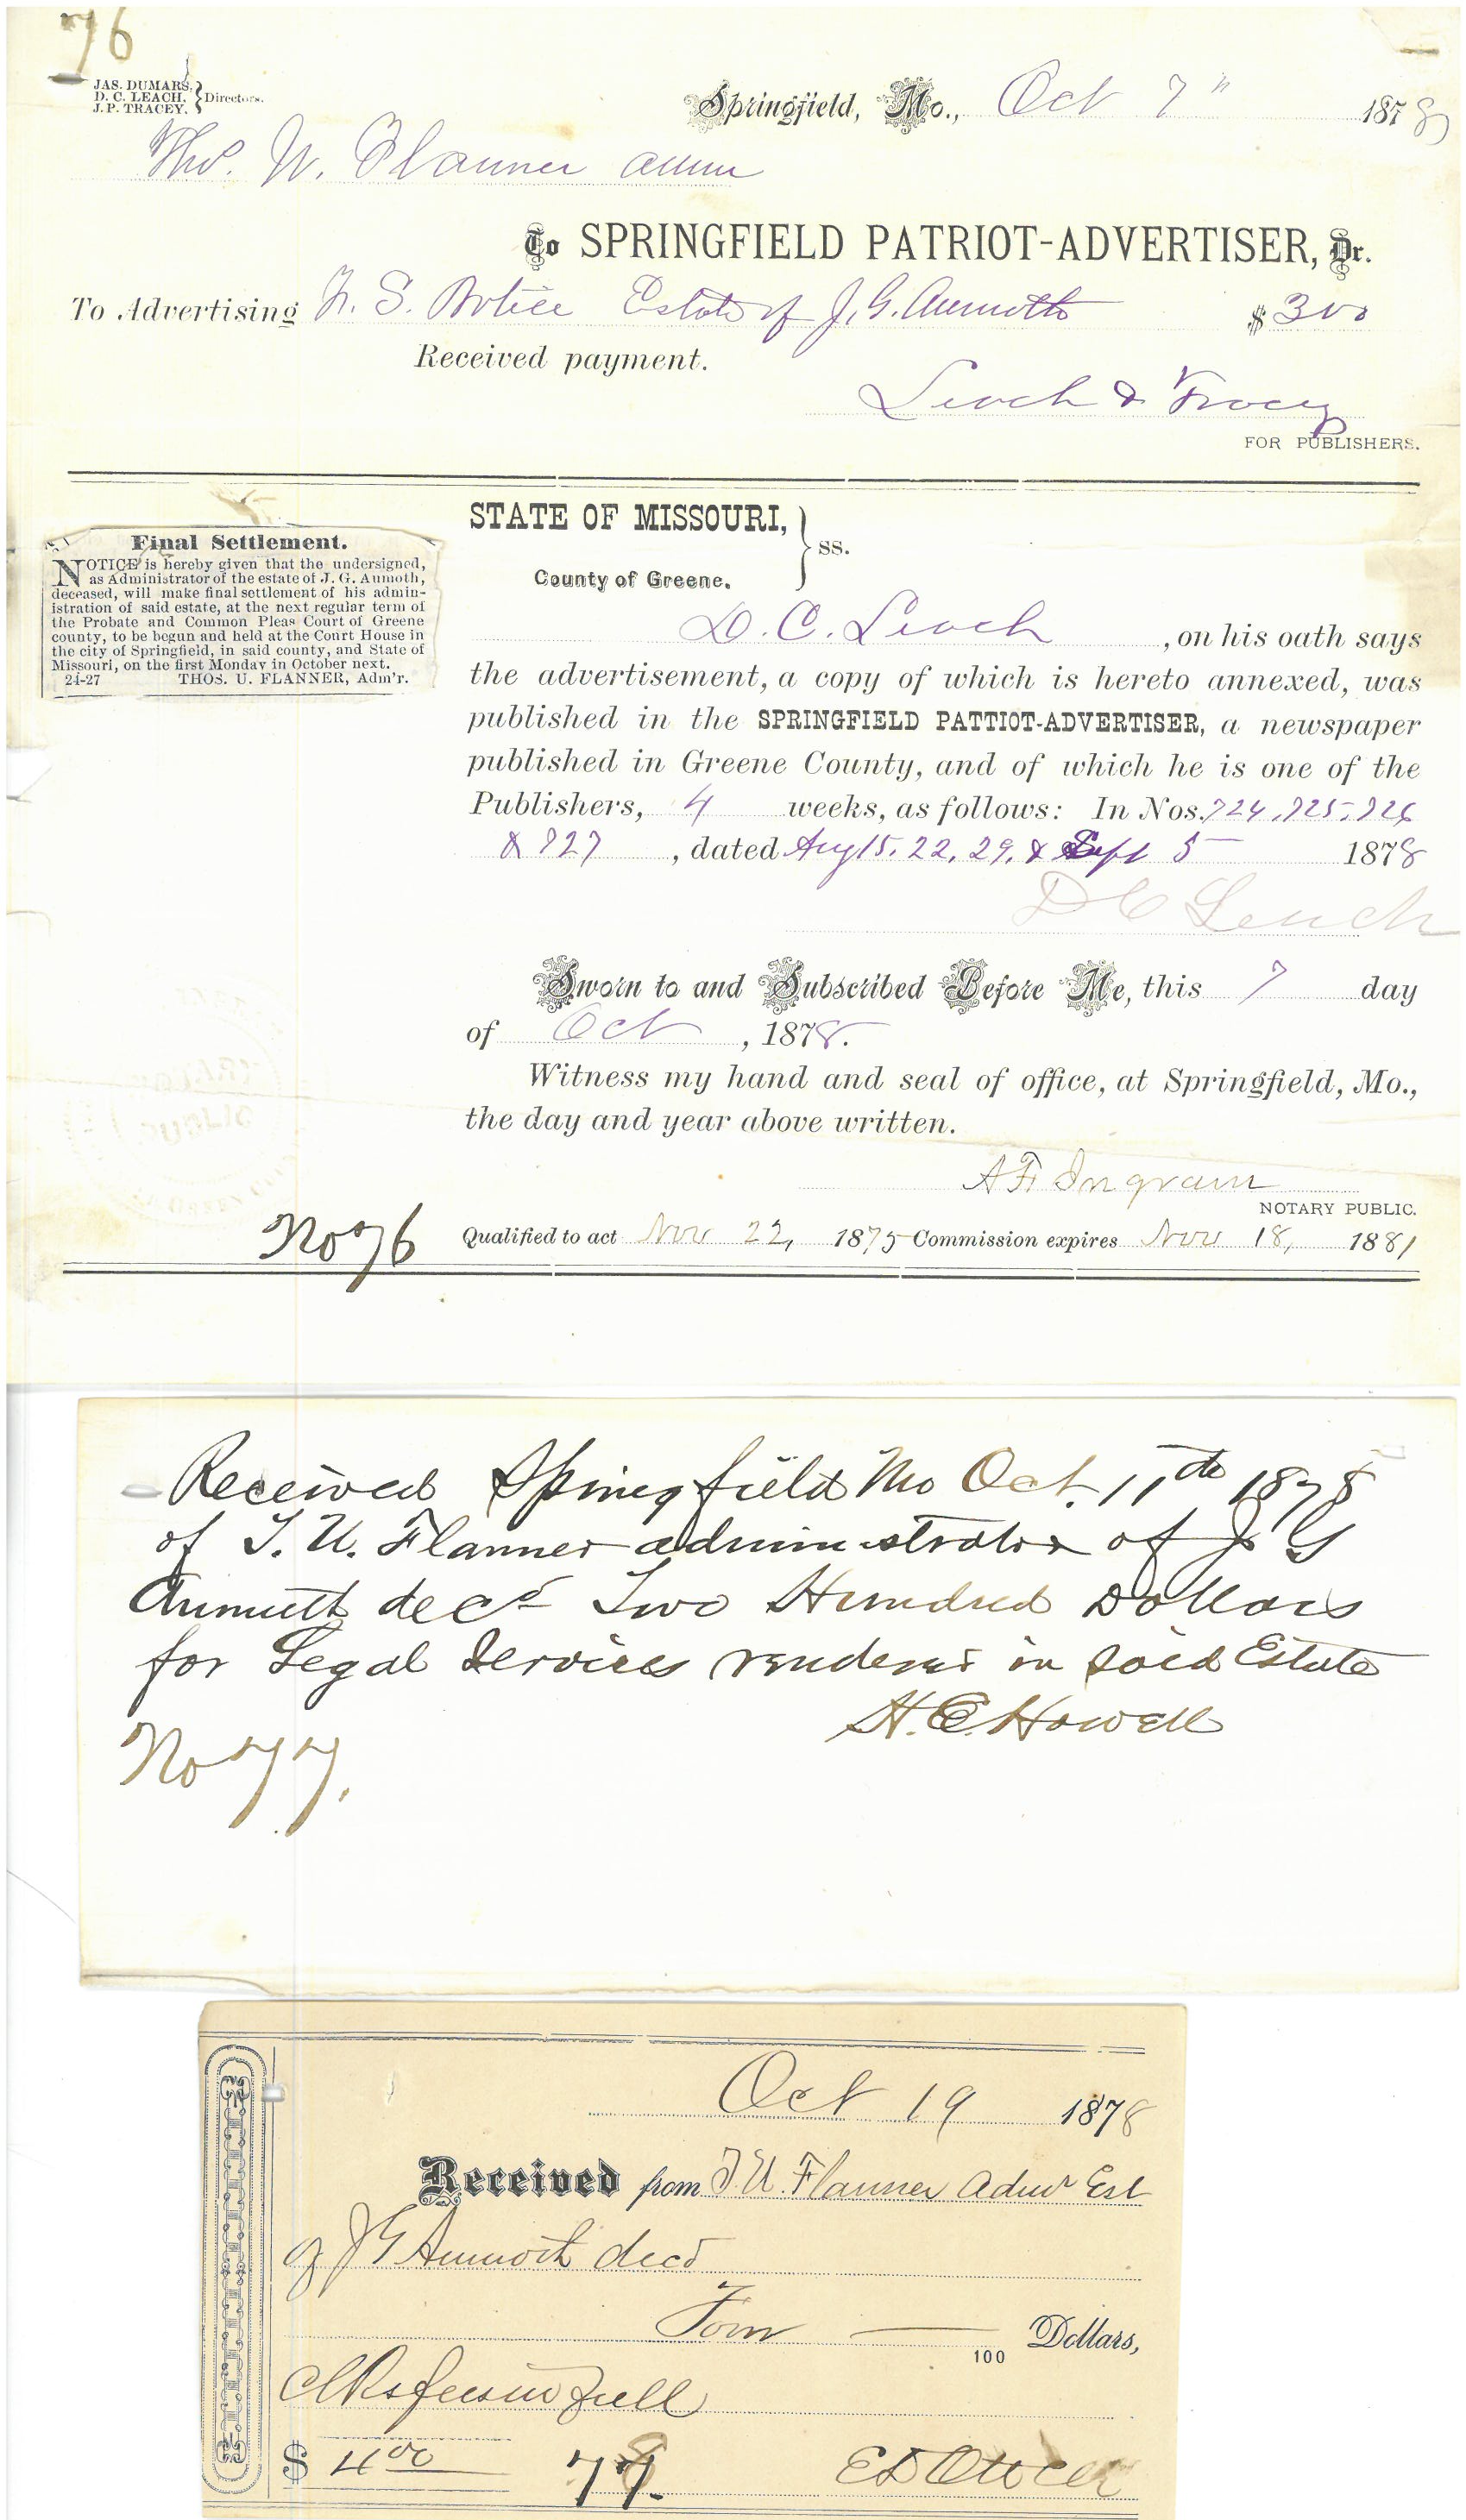 76
JAS. DUMARS,
D. C. LEACH, } Directors.
J. P. TRACEY.
Springfield, Mo., Oct 7" 1878
Thos. W. Flanner admr
To SPRINGFIELD PATRIOT-ADVERTISER, Dr.
To Advertising F. S. Notice Estate of J. G. Aumoth $ 3 00
Received payment.
Leach & Tracey
FOR PUBLISHERS.
Final Settlement.
NOTICE is hereby given that the undersigned,
as Administrator of the estate of J. G. Aumoth,
deceased, will make final settlement of his admin-
istration of said estate, at the next regular term of
the Probate and Common Pleas Court of Greene
county, to be begun and held at the Court House in
the city of Springfield, in said county, and State of
Missouri, on the first Monday in October next.
24-27 THOS. U. FLANNER, Adm'r.
STATE OF MISSOURI, } ss.
County of Greene.
D. C. Leach, on his oath says
the advertisement, a copy of which is hereto annexed, was
published in the SPRINGFIELD PATTIOT-ADVERTISER, a newspaper
published in Greene County, and of which he is one of the
Publishers, 4 weeks, as follows: In Nos. 724, 725, 726
& 727, dated Aug 15, 22, 29, & Sept 5 1878
D C Leach
Sworn to and Subscribed Before Me, this 7 day
of Oct, 1878.
Witness my hand and seal of office, at Springfield, Mo.,
the day and year above written.
A F Ingram
NOTARY PUBLIC.
No 76
Qualified to act Nov 22, 1875 Commission expires Nov 18, 1881
Received Springfield Mo Oct. 11th 1878
of T. U. Flanner administrator of J G
Aumuth decd Two Hundred Dollars
for Legal Services rendered in said Estate
H. E. Howell
No 77.
Oct 19 1878
Received from T. U. Flanner Admr Est
of J G Aumoth decd
Four 100 Dollars,
Clks fees in full
$ 4 00 78